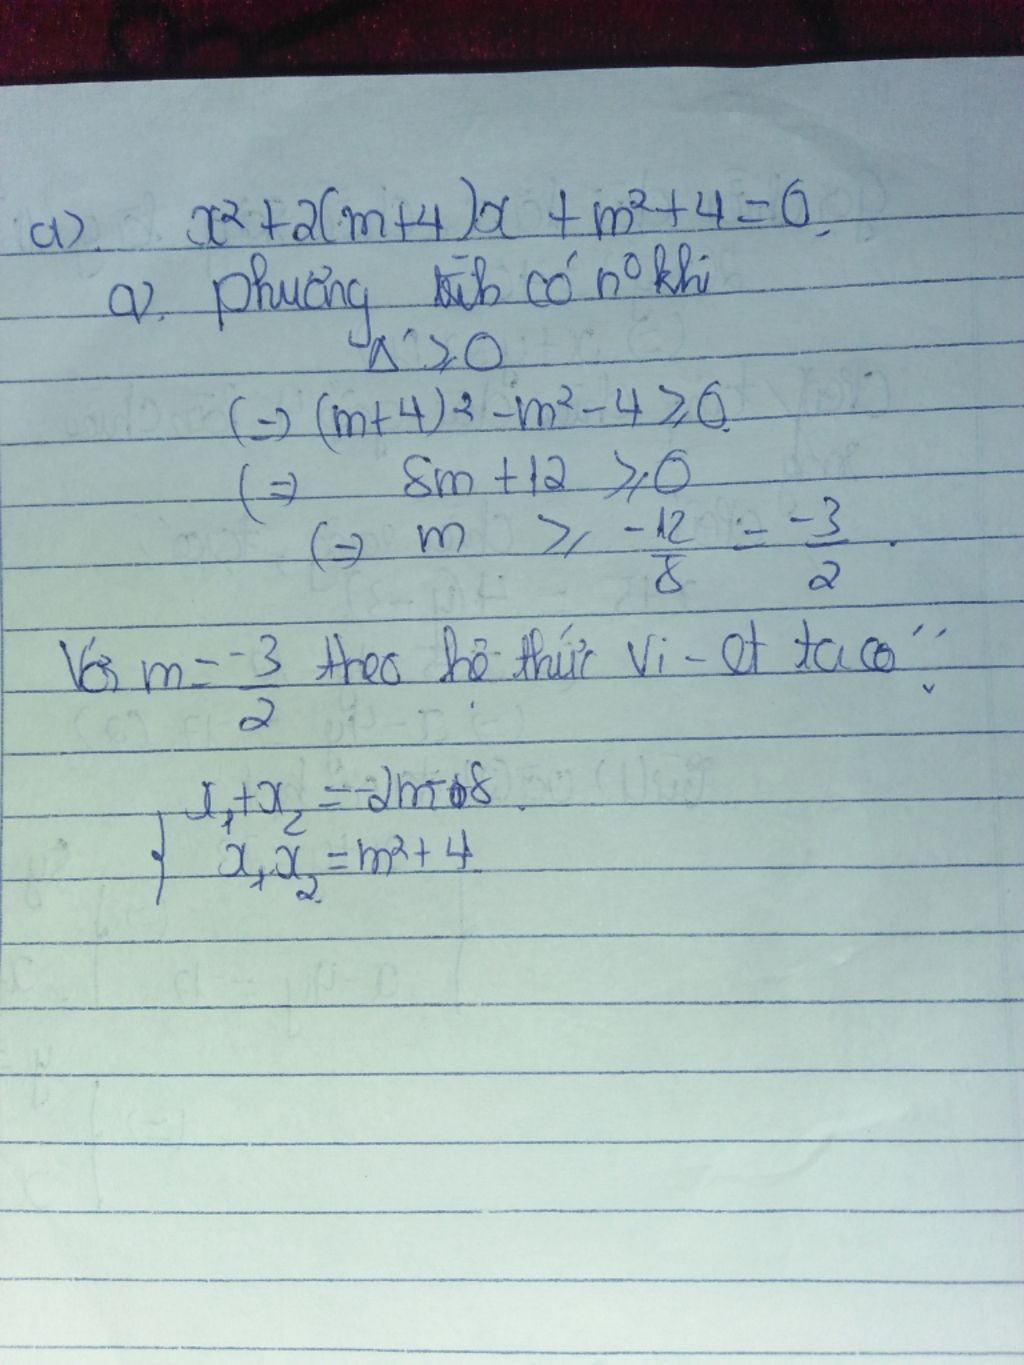 a). x²+2(m+4)x +m²+4=0.
a). phương trình có n⁰ khi
Δ' ≥ 0
(=) (m+4)² -m² - 4 ≥ 0.
(=) 8m + 12 ≥ 0
(=) m ≥ -12/8 = -3/2 .
Với m = -3/2 theo hệ thức Vi-et ta có
{ x₁+x₂ = -2m-8 .
x₁x₂ = m²+4.